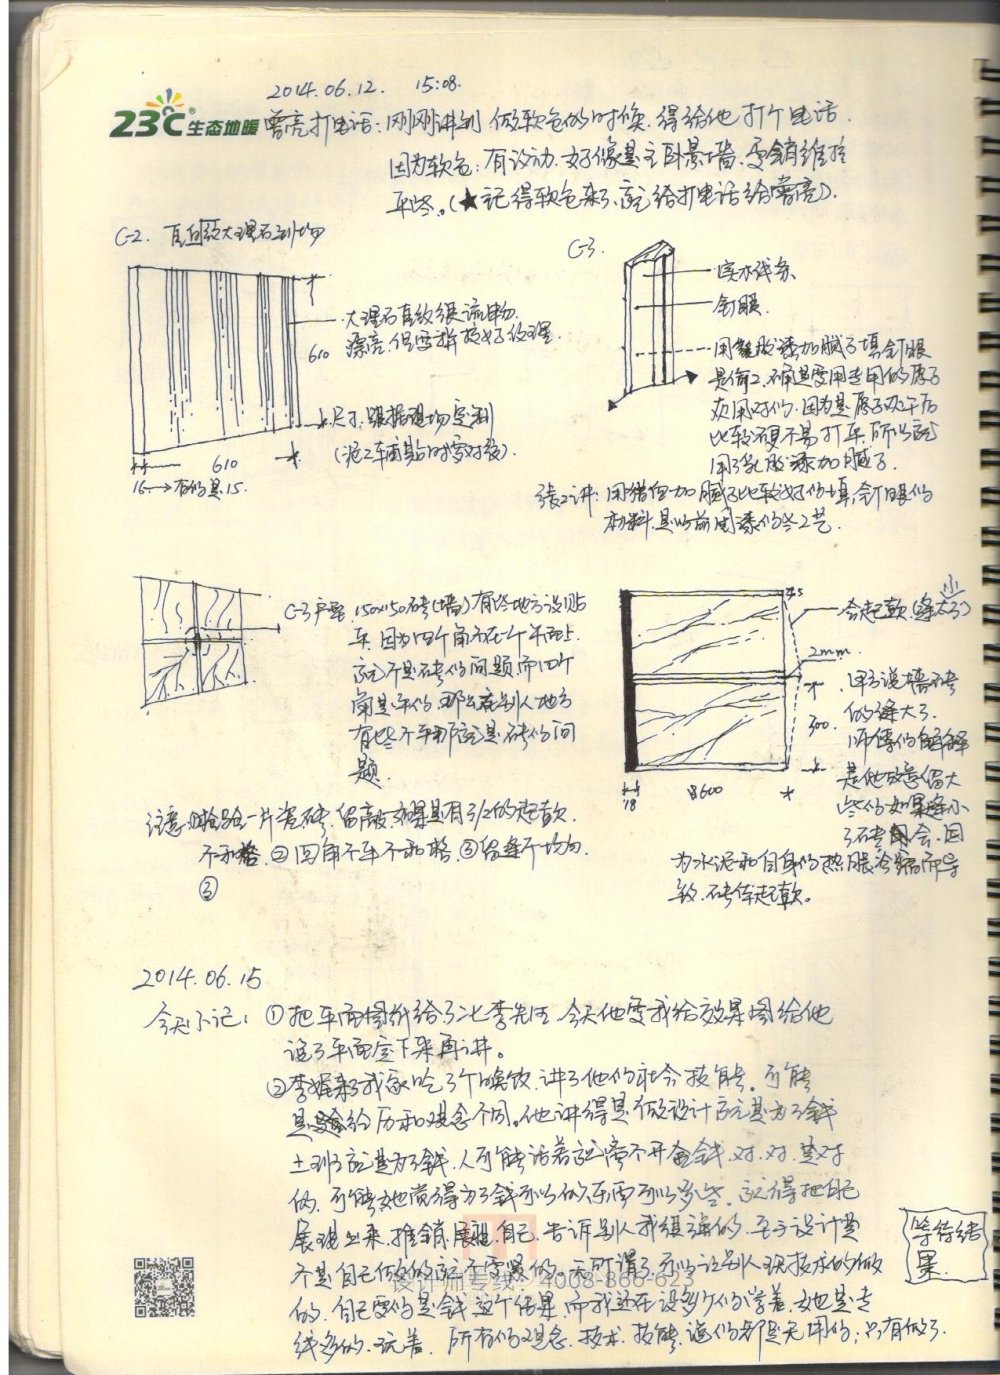 2014.06.12. 15:08.
23℃®生态地暖 曾亮打电话:刚刚讲到 做软包的时候.得给他打个电话.
因为软包:有设动.好像是主卧景墙.要销维控
平些。(★记得软包来了,就给打电话给曾亮).
C-2. 直白纹大理石到场
C-3.
大理石直纹很流畅.
漂亮.但要排核好纹理.
610
尺寸:跟据现场定制
(泥工车面贴时要对纹).
610
16.→有的是15.
实木线条.
钉眼.
用乳胶漆加腻子填钉眼
是偷工.确是要用专用的原子
灰用对的.因为是原子灰干后
比较硬不易打平.所以就
用了乳胶漆加腻子.
张工讲:用猪血加腻子比较好的填钉眼的
材料.是以前用漆的老工艺.
C-3户型.150x150砖(墙)有些地方没贴
平.因为四个角不在一个平面上.
这不是砖的问题而四个
角是平的.那么在别人地方
有些不平那就是砖的问
题.
会起鼓(缝太小)
2mm.
甲方说墙砖
的缝大了.
师傅的解释
是他故意留大
些的如果缝小
了砖会.因
为水泥和自身的热胀冷缩而导
致.砖体起鼓。
300.
18
600
注意:①抬验一片瓷砖.留敲.如果是有1/2的起鼓.
不和格.②四角不平不和格.③留缝不均匀.
③
2014.06.15
今天小记: ①把平面图纸给了二七李先生.今天他要我给效果图给他
说了平面定下来再讲。
②李娓来了我家吃了个晚饭.讲了他的社会技能.可能
是经历和观念不同.他讲得是做设计就是为了钱
土到了就是为了钱.人可能活着就离不开金钱.对.对.是对
的.可能她觉得为了钱可以做的东西可以多些.就得把自己
展现出来.推销.展现自己.告诉别人我很强的.至于设计是
不是自己做的就不重要的.无所谓了.可以让别人现技术的做
的.自己要的是钱这个结果.而我还在设多少的学着.她是走
线多的.玩着.所有的观念.技术.技能.说的都是无用的;只有做了.
等待结
果.
设计师专线:4008-866-623